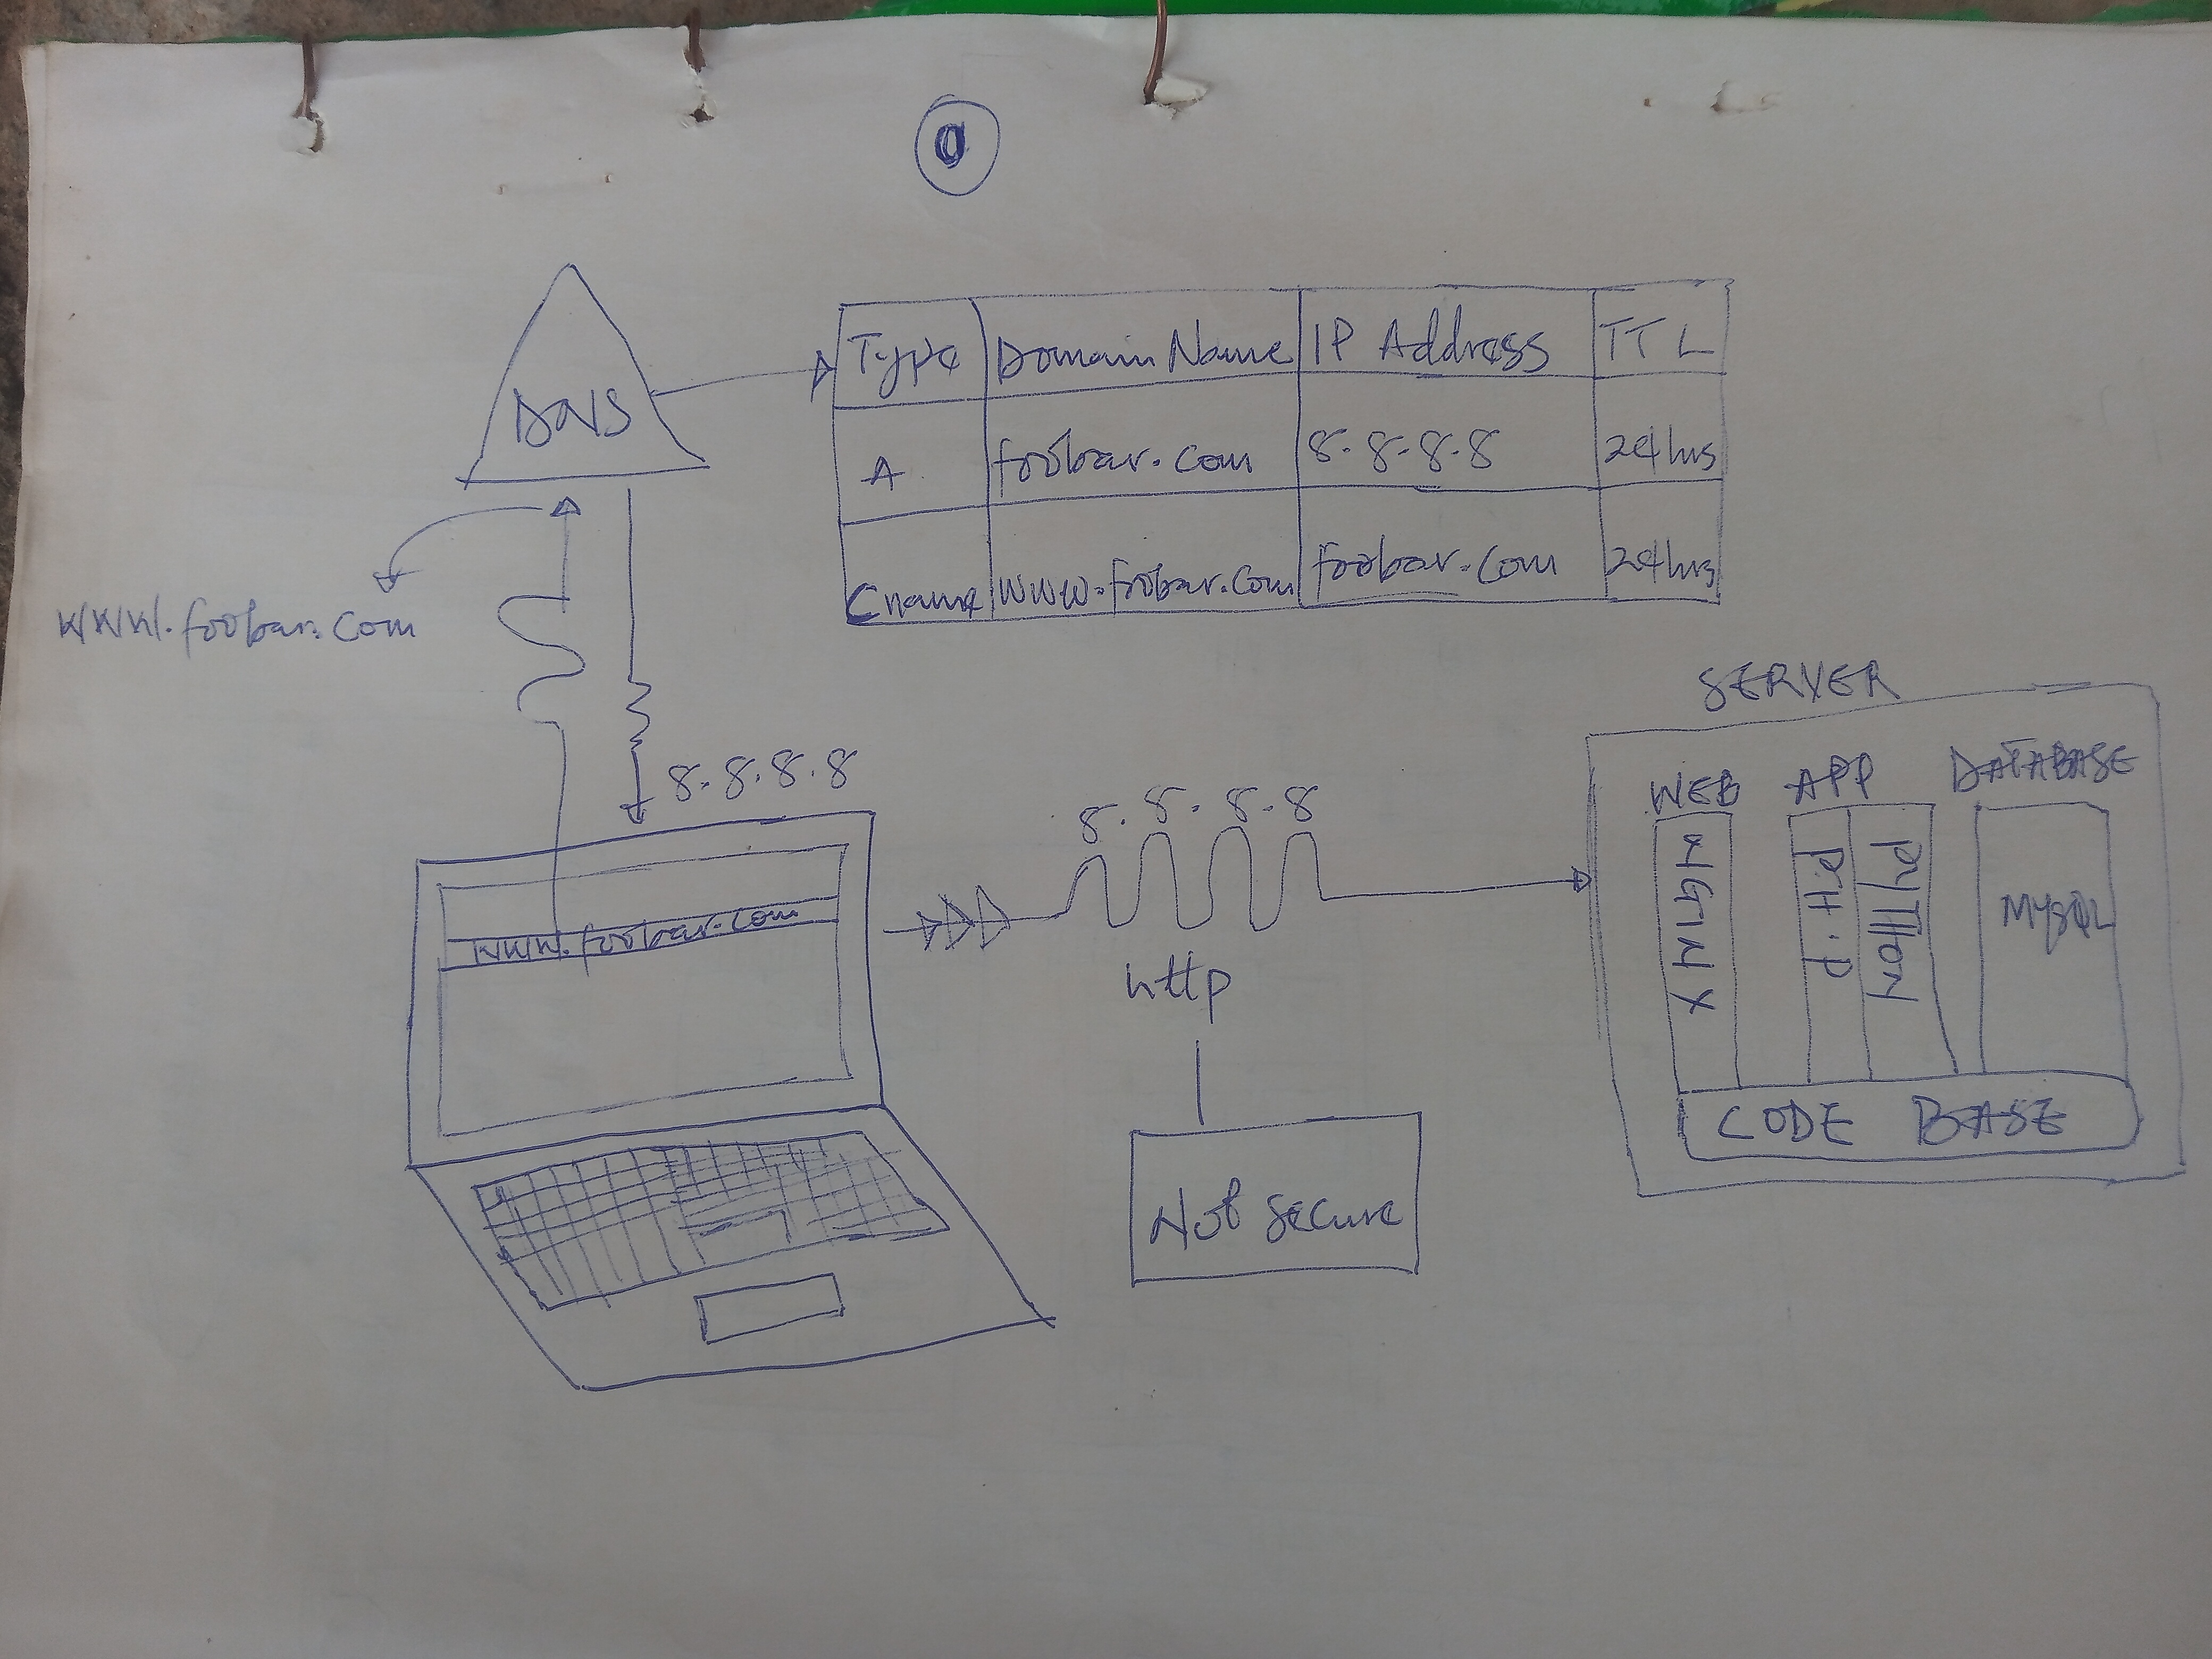 0
DNS
Type Domain Name IP Address TTL
A foobar.com 8.8.8.8 24hrs
Cname www.foobar.com foobar.com 24hrs
www.foobar.com
8.8.8.8
www.foobar.com
8.8.8.8
http
Not secure
SERVER
WEB APP DATABASE
NGINX
PH.P
PYTHON
MYSQL
CODE BASE